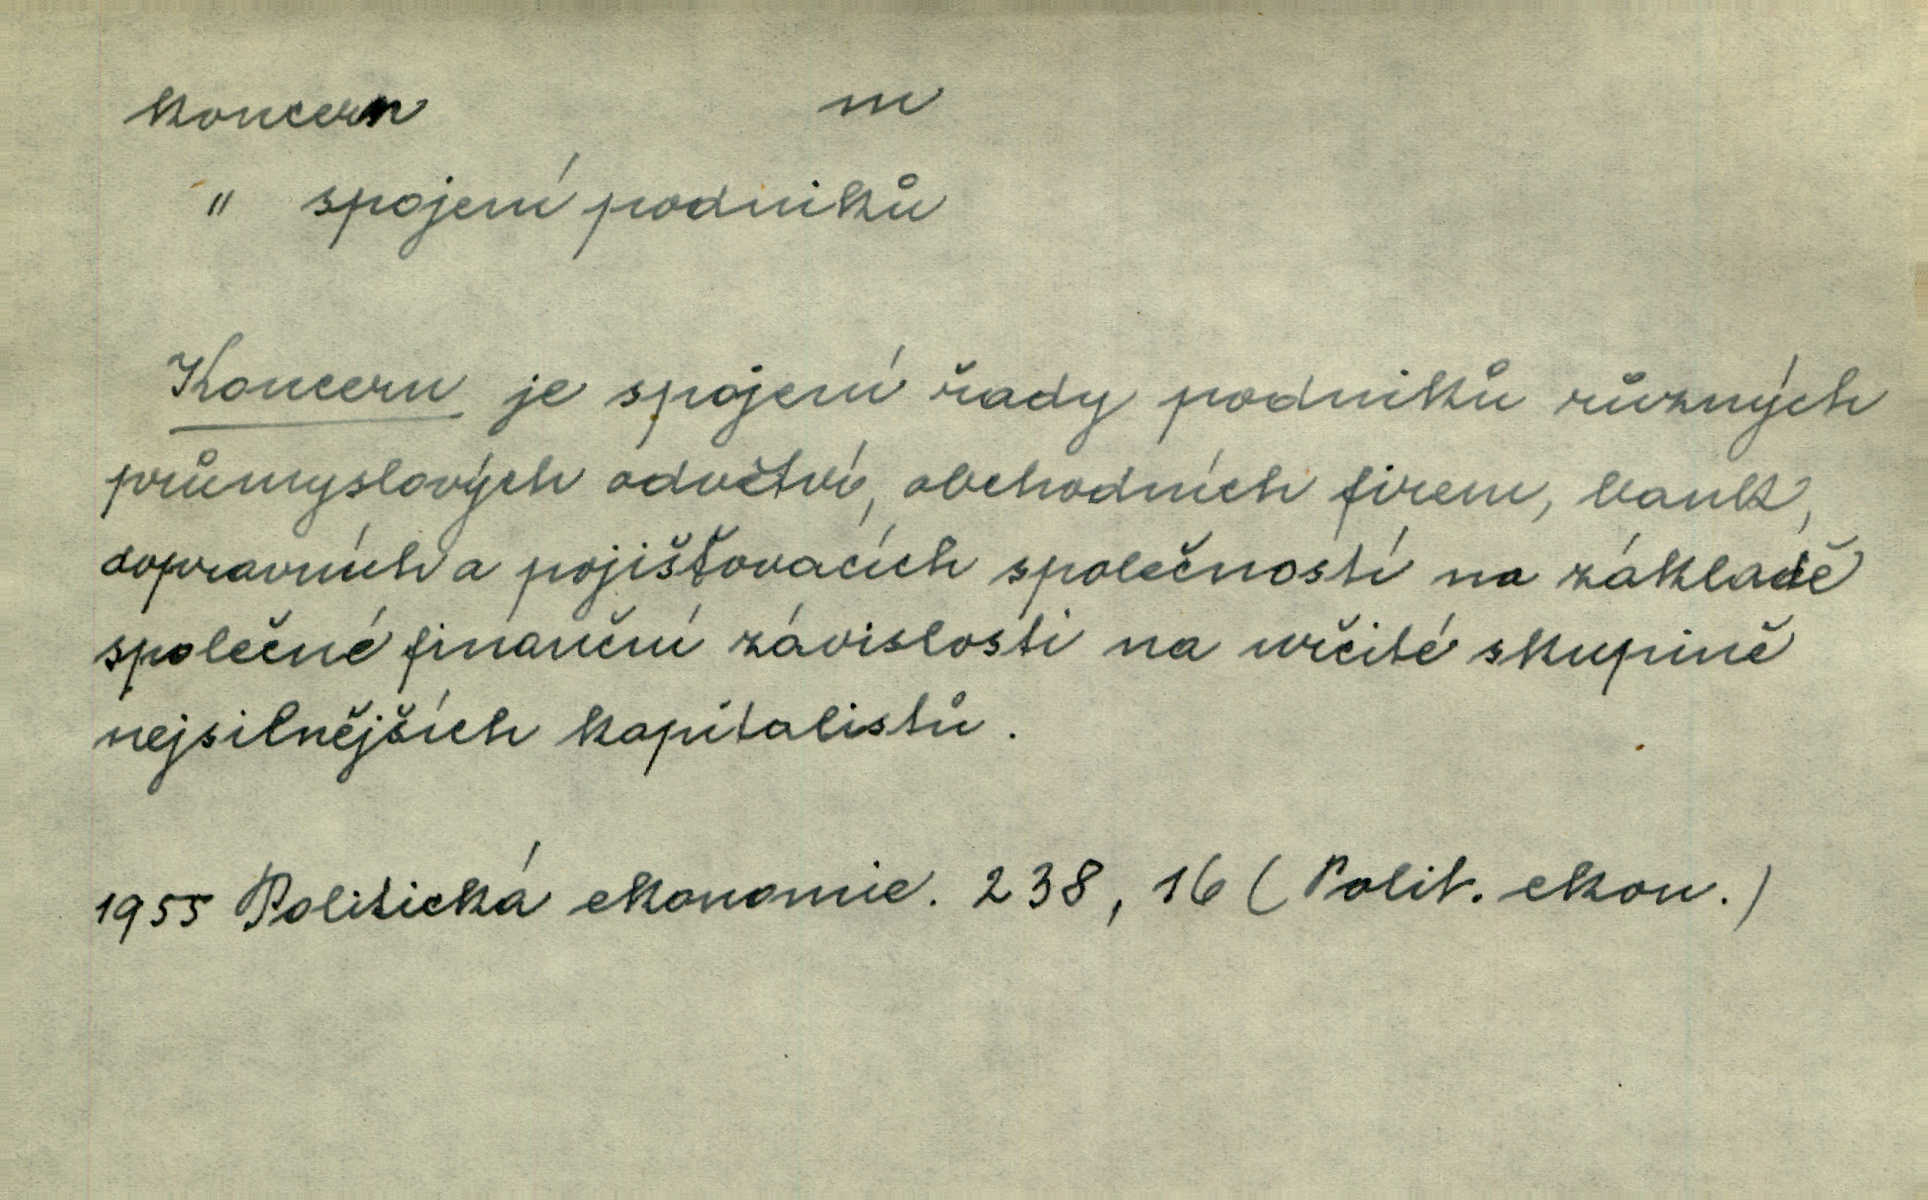 koncern m
" spojení podniků
Koncern je spojení řady podniků různých
průmyslových odvětví, obchodních firem, bank,
dopravních a pojišťovacích společností na základě
společné finanční závislosti na určité skupině
nejsilnějších kapitalistů.
1955 Politická ekonomie. 238, 16 (Polit. ekon.)